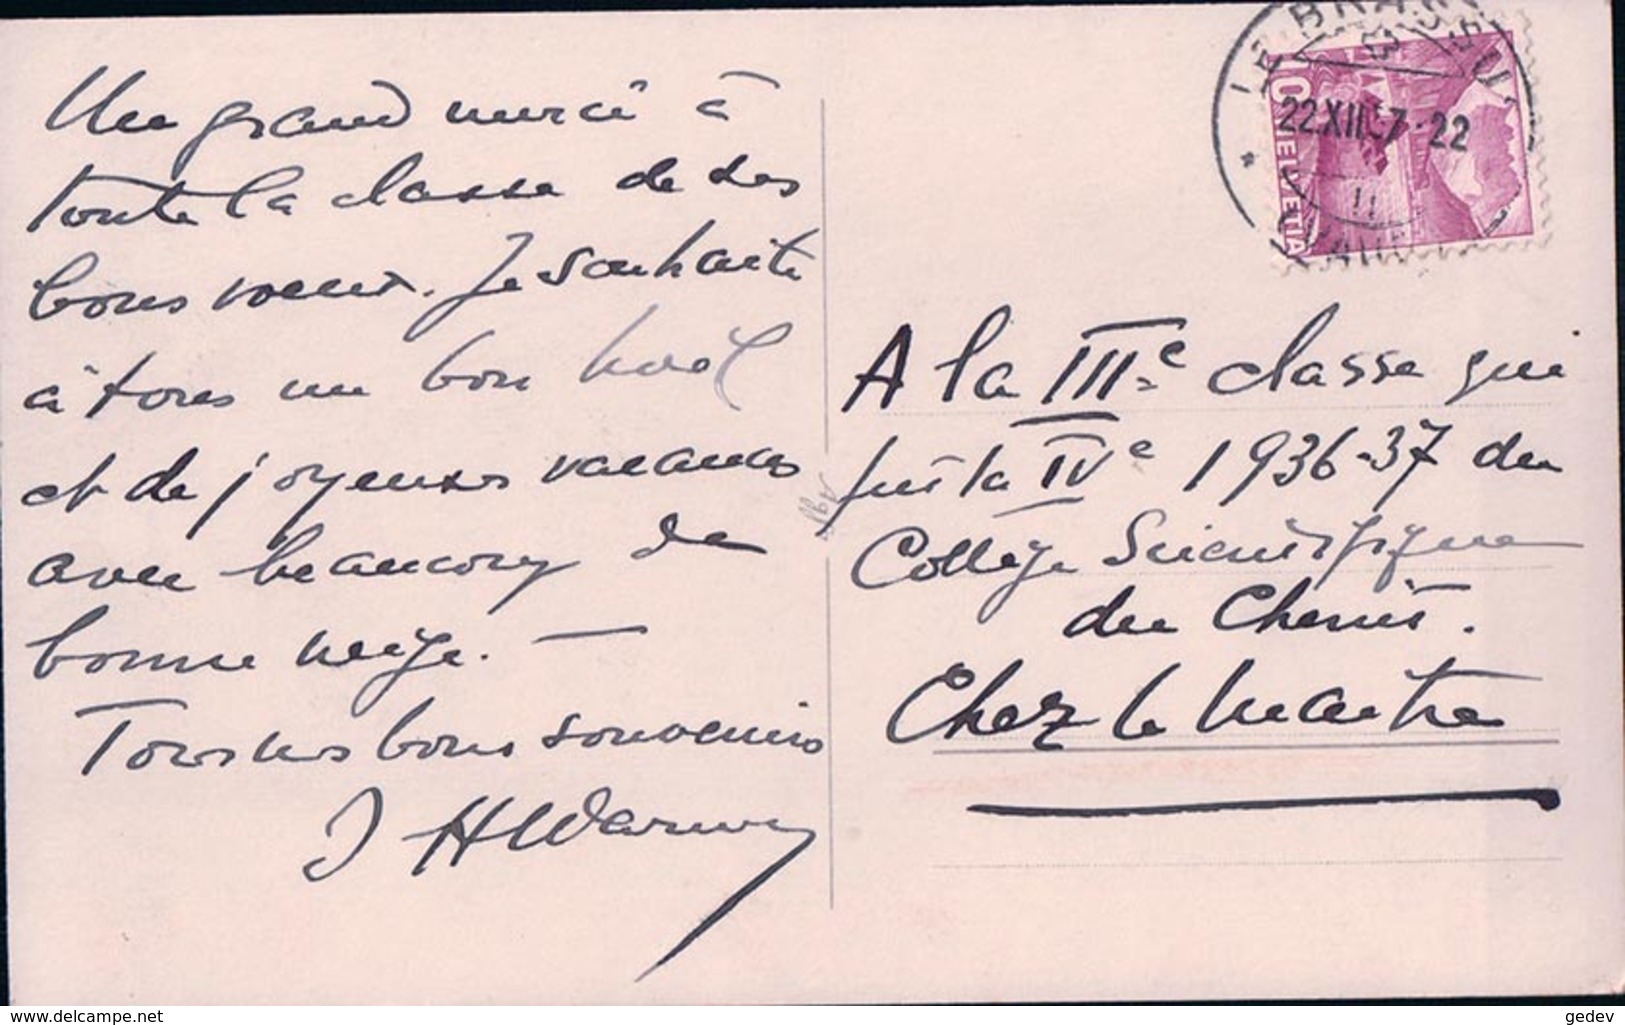 Un grand merci à
toute la classe de ses
bons voeux. Je souhaite
à tous un bon Noël
et de joyeuses vacances
avec beaucoup de
bonne neige. —
Tous mes bons souvenirs
A la IIIe classe qui
fut la IVe 1936-37 du
Collège Scientifique
du
Chez le Maître
LE BRASSUS
22 XII 37-22
10 HELVETIA
gedev